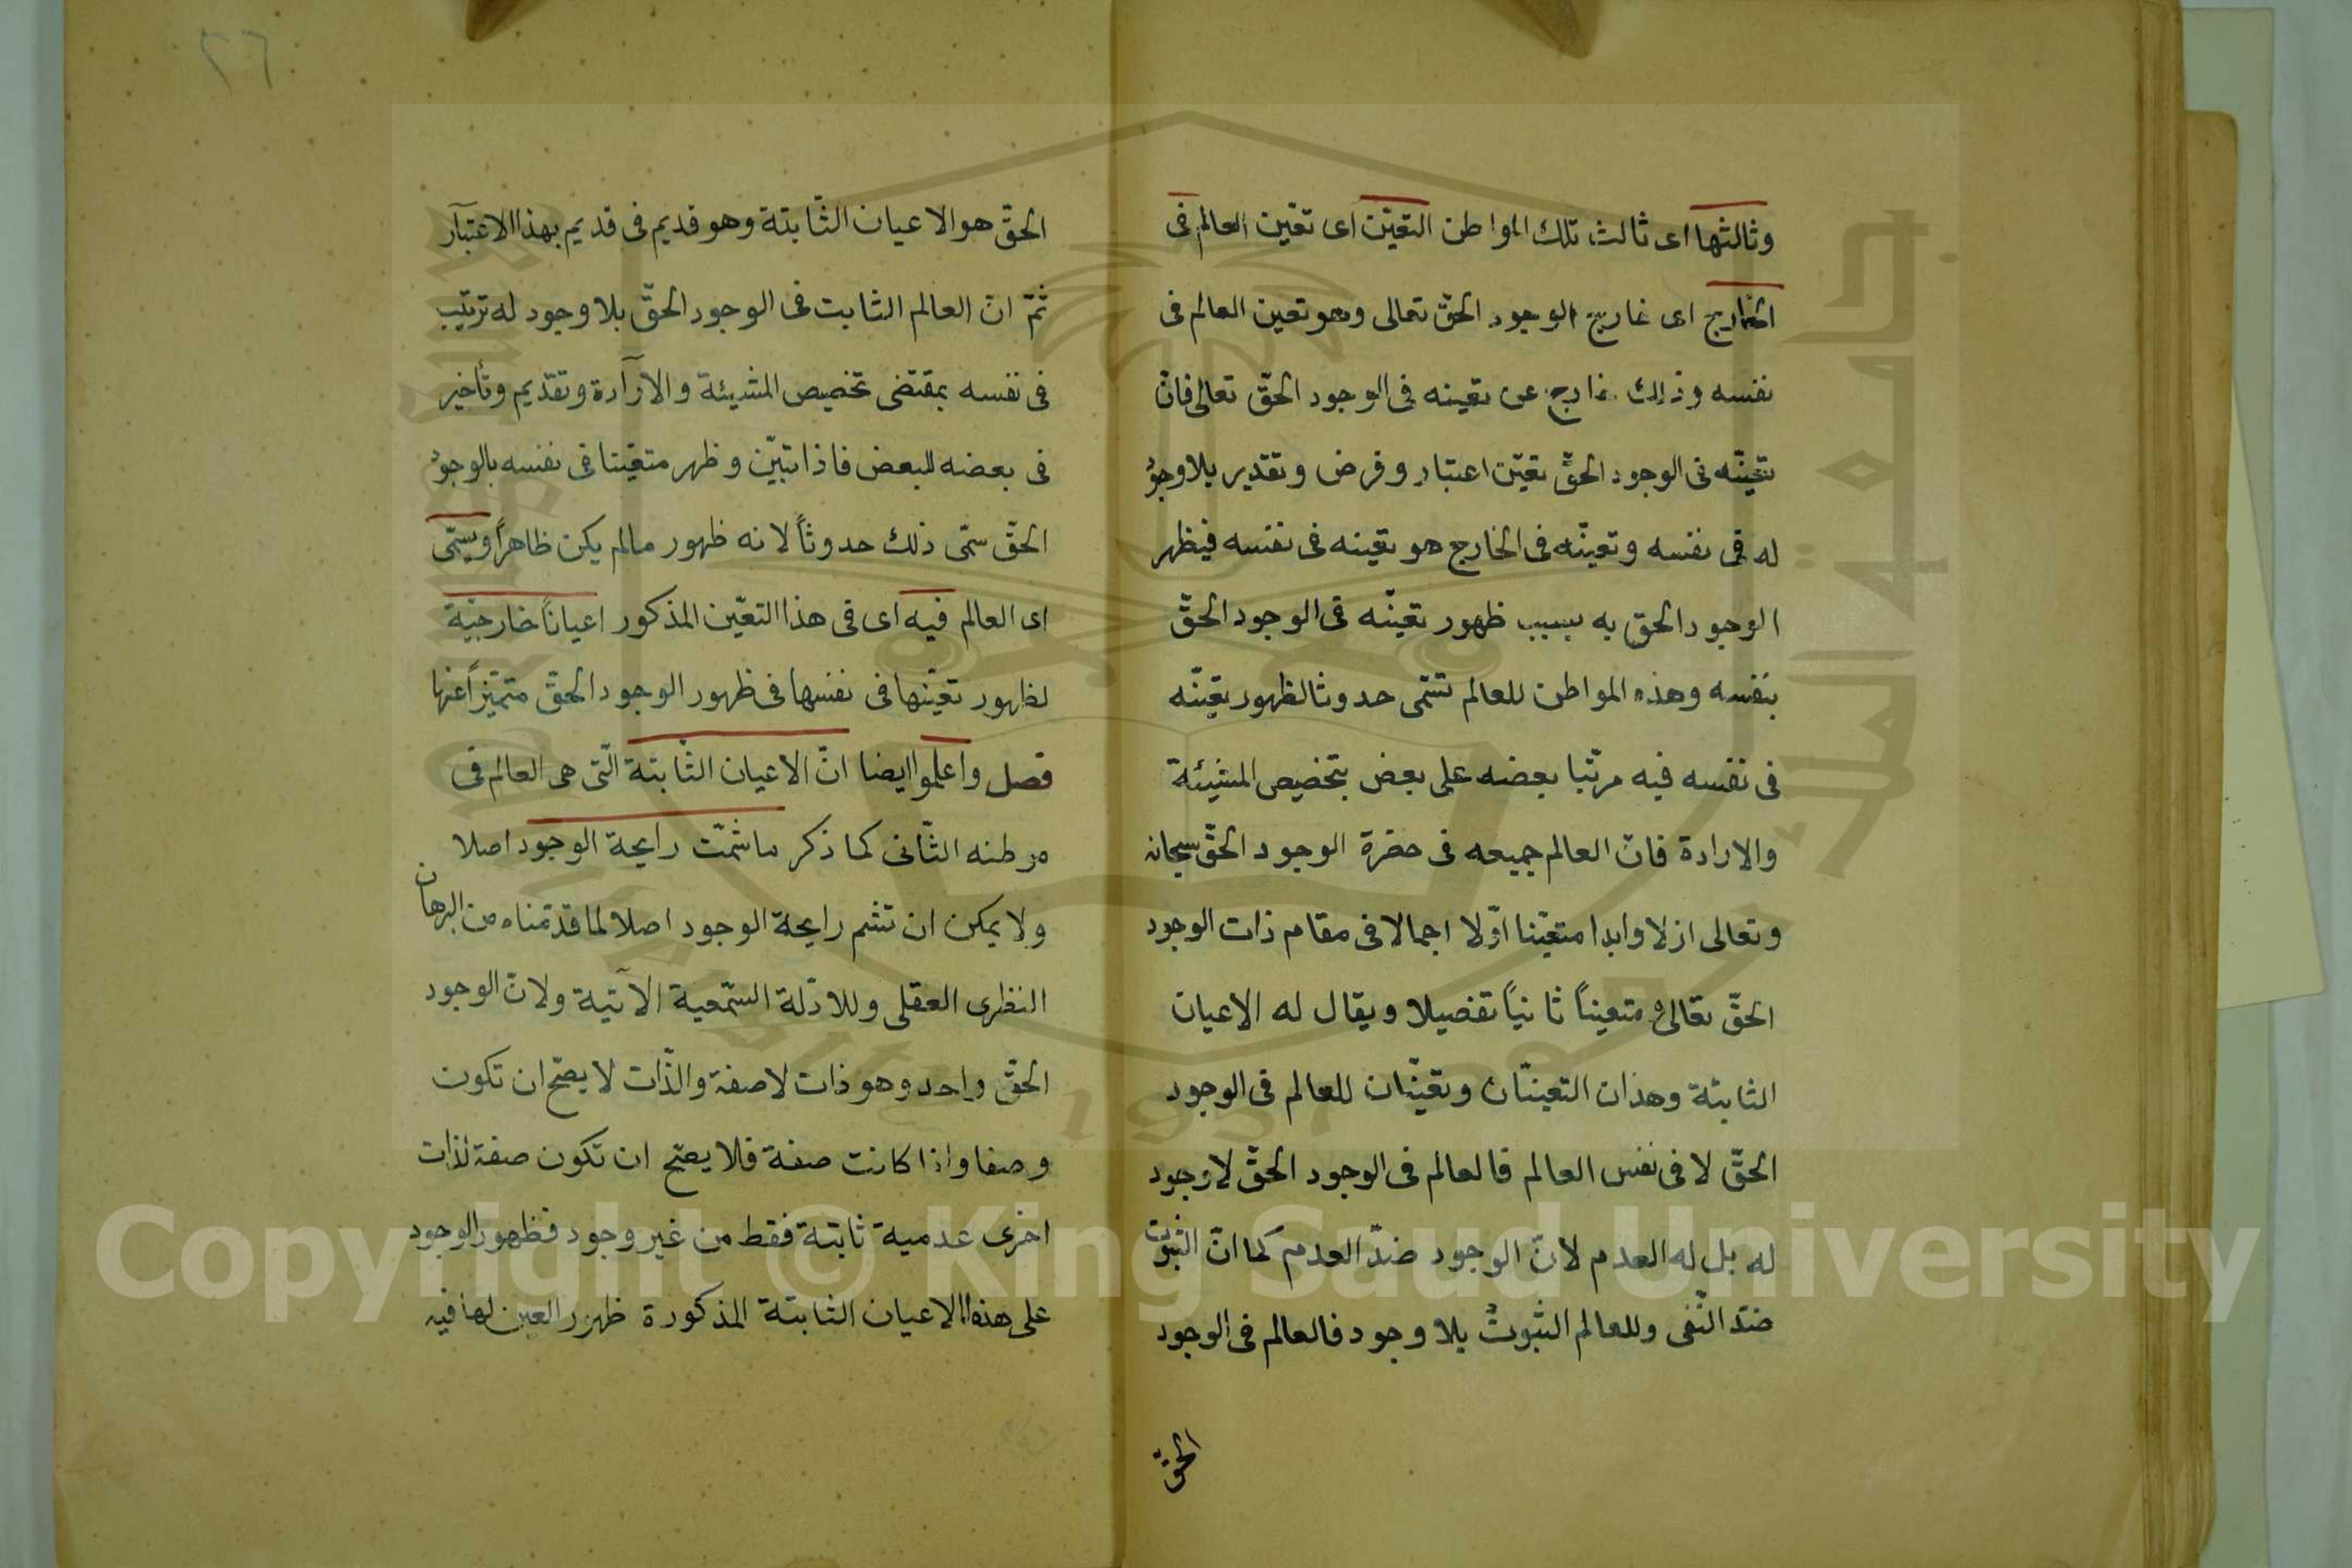 وثالثها اى ثالث تلك المواطن التعيّن اى تعيّن العالم فى
الخارج اى خارج الوجود الحقّ تعالى وهو تعين العالم فى
نفسه وذلك خارج عن تعينه فى الوجود الحقّ تعالى فانّ
تعينّه فى الوجود الحقّ تعيّن اعتبار وفرض وتقدير بلا وجود
له فى نفسه وتعينّه فى الخارج هو تعينه فى نفسه فيظهر
الوجود الحق به بسبب ظهور تعينّه فى الوجود الحقّ
بنفسه وهذه المواطن للعالم تسّمى حدوثا لظهور تعينّه
فى نفسه فيه مرتّبا بعضه على بعض بتخصيص المشيئة
والارادة فانّ العالم جميعه فى حضرة الوجود الحقّ سبحانه
وتعالى ازلا وابدا متعيّنا اوّلا اجمالا فى مقام ذات الوجود
الحقّ تعالى ومتعيناً ثانياً تفصيلا ويقال له الاعيان
الثابتة وهذان التعينّان وتعيّنان للعالم فى الوجود
الحقّ لا فى نفس العالم فالعالم فى الوجود الحقّ لا وجود
له بل له العدم لانّ الوجود ضدّ العدم كما انّ الثبوت
ضدّ النّفى وللعالم الثبوت بلا وجود فالعالم فى الوجود
الحقّ
٢٦
الحقّ هو الاعيان الثّابتة وهو قديم فى قديم بهذا الاعتبار
ثمّ انّ العالم الثابت فى الوجود الحقّ بلا وجود له ترتيب
فى نفسه بمقتضى تخصيص المشيئة والارادة وتقديم وتأخير
فى بعضه للبعض فاذا تبيّن وظهر متعيّنا فى نفسه بالوجود
الحقّ سمّى ذلك حدوثاً لانه ظهور مالم يكن ظاهراً ويسمّى
اى العالم فيه اى فى هذا التعّين المذكور اعياناً خارجيّة
لظهور تعيّنها فى نفسها فى ظهور الوجود الحقّ متميّزاً عنها
فصل واعلموا ايضا انّ الاعيان الثّابتة الّتى هى العالم فى
موطنه الثّانى كما ذكر ماشمّت رايحة الوجود اصلا
ولا يمكن ان تشم رايحة الوجود اصلا لما قدّمناه من البرهان
النظرى العقلى وللادّلة السّمعية الآتية ولانّ الوجود
الحقّ واحد وهو ذات لا صفة والذّات لا يصّح ان تكون
وصفا واذا كانت صفة فلا يصّح ان تكون صفة لذات
اخرى عدمية ثابتة فقط من غير وجود فظهور الوجود
على هذه الاعيان الثابتة المذكورة ظهور العين لها فيه
Copyright © King Saud University